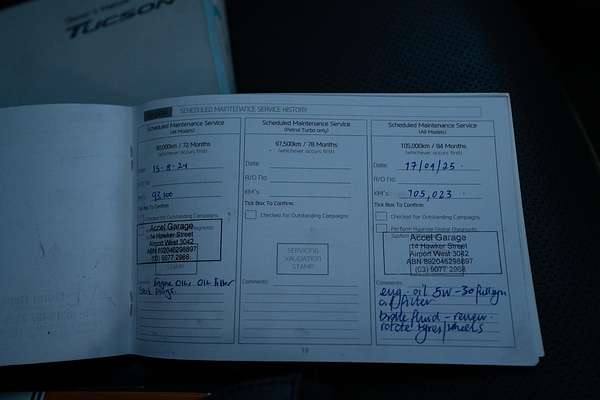 Owner's Manual
TUCSON
SCHEDULED MAINTENANCE SERVICE HISTORY
Scheduled Maintenance Service
(All Models)
90,000km / 72 Months
(whichever occurs first)
Date: 15-8-24
R/O No:
KM's: 93100
Tick Box To Confirm:
Checked for Outstanding Campaigns
Accel Garage
14 Hawker Street
Airport West 3042
ABN 892046298897
(03) 9077 2988
STAMP
Comments: Engine Oil, Oil Filter
Scheduled Maintenance Service
(Petrol Turbo only)
97,500km / 78 Months
(whichever occurs first)
Date:
R/O No:
KM's:
Tick Box To Confirm:
Checked for Outstanding Campaigns
SERVICING
VALIDATION
STAMP
Comments:
Scheduled Maintenance Service
(All Models)
105,000km / 84 Months
(whichever occurs first)
Date: 17/01/25.
R/O No:
KM's: 105,023.
Tick Box To Confirm:
Checked for Outstanding Campaigns
Perform Hyundai Global Diagnostic
System
Accel Garage
14 Hawker Street
Airport West 3042
ABN 892046298897
(03) 9077 2988
Comments:
eng. oil 5W-30 full syn
oil filter
brake fluid - renew.
rotate tyres/wheels